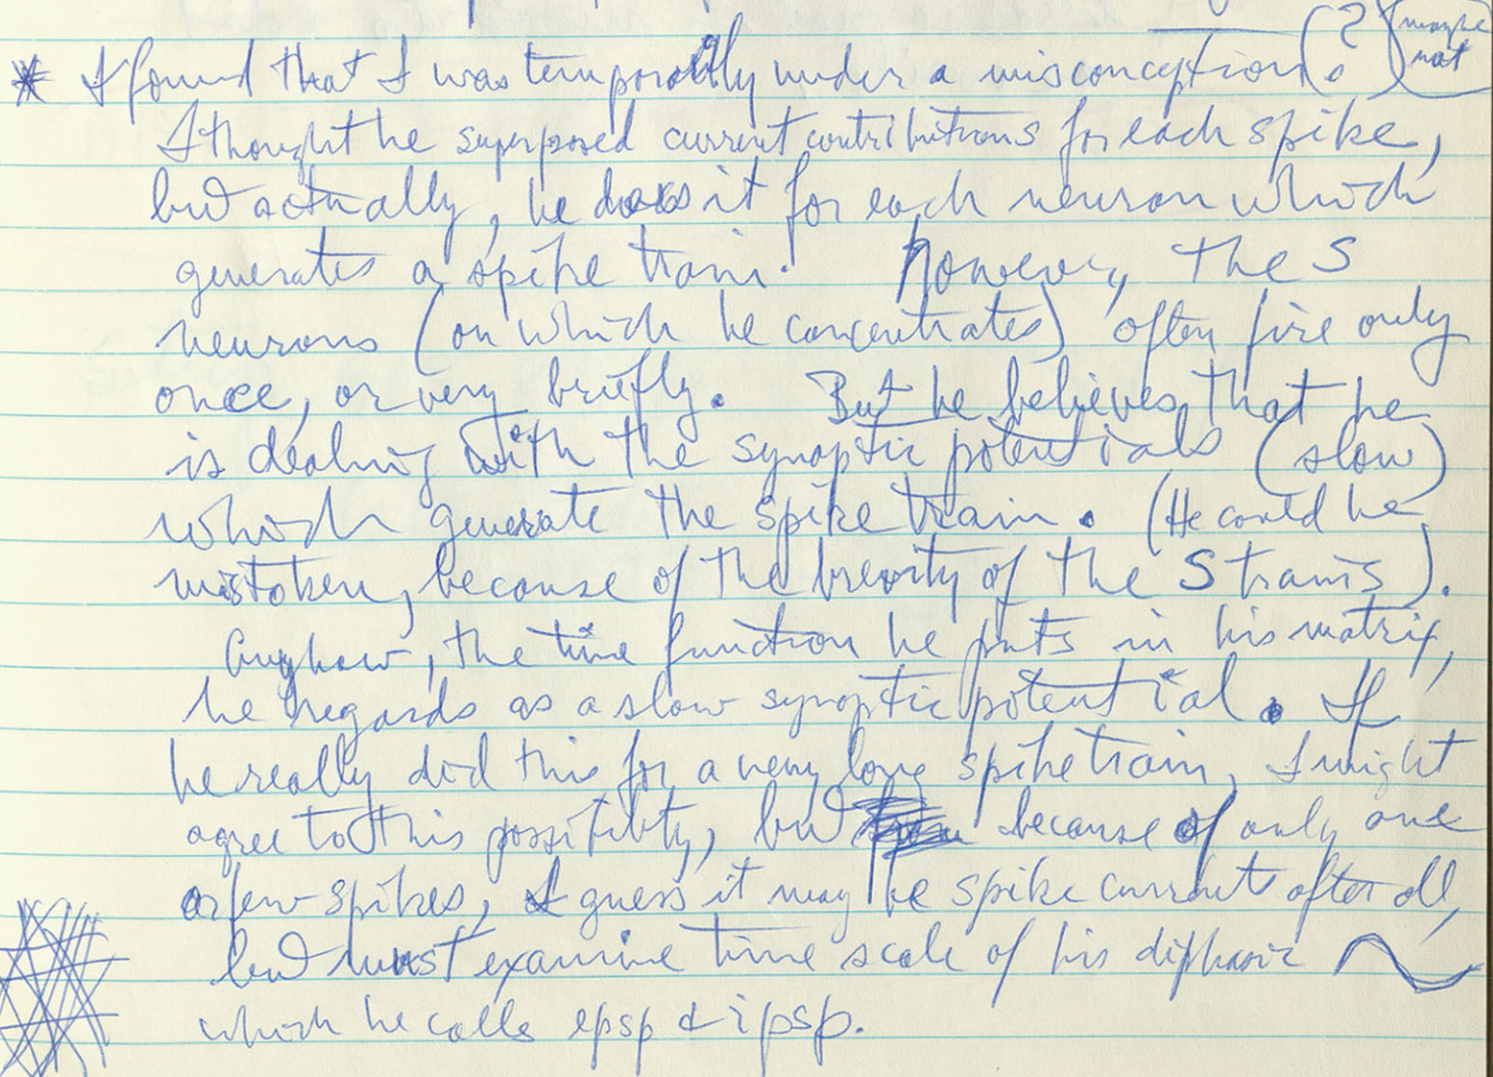 * I found that I was temporarily under a misconception. (?) (maybe not)
I thought he superposed current contributions for each spike,
but actually, he does it for each neuron which
generates a spike train. However, the S
neurons (on which he concentrates) often fire only
once, or very briefly. But he believes that he
is dealing with the synaptic potentials (slow)
which generate the spike train. (He could be
mistaken, because of the brevity of the S trains).
Anyhow, the time function he puts in his matrix,
he regards as a slow synaptic potential. If
he really did this for a very long spike train, I might
agree to this possibility, but because of only one
or few spikes, I guess it may be spike currents after all,
but must examine time scale of his diphasic
which he calls epsp & ipsp.